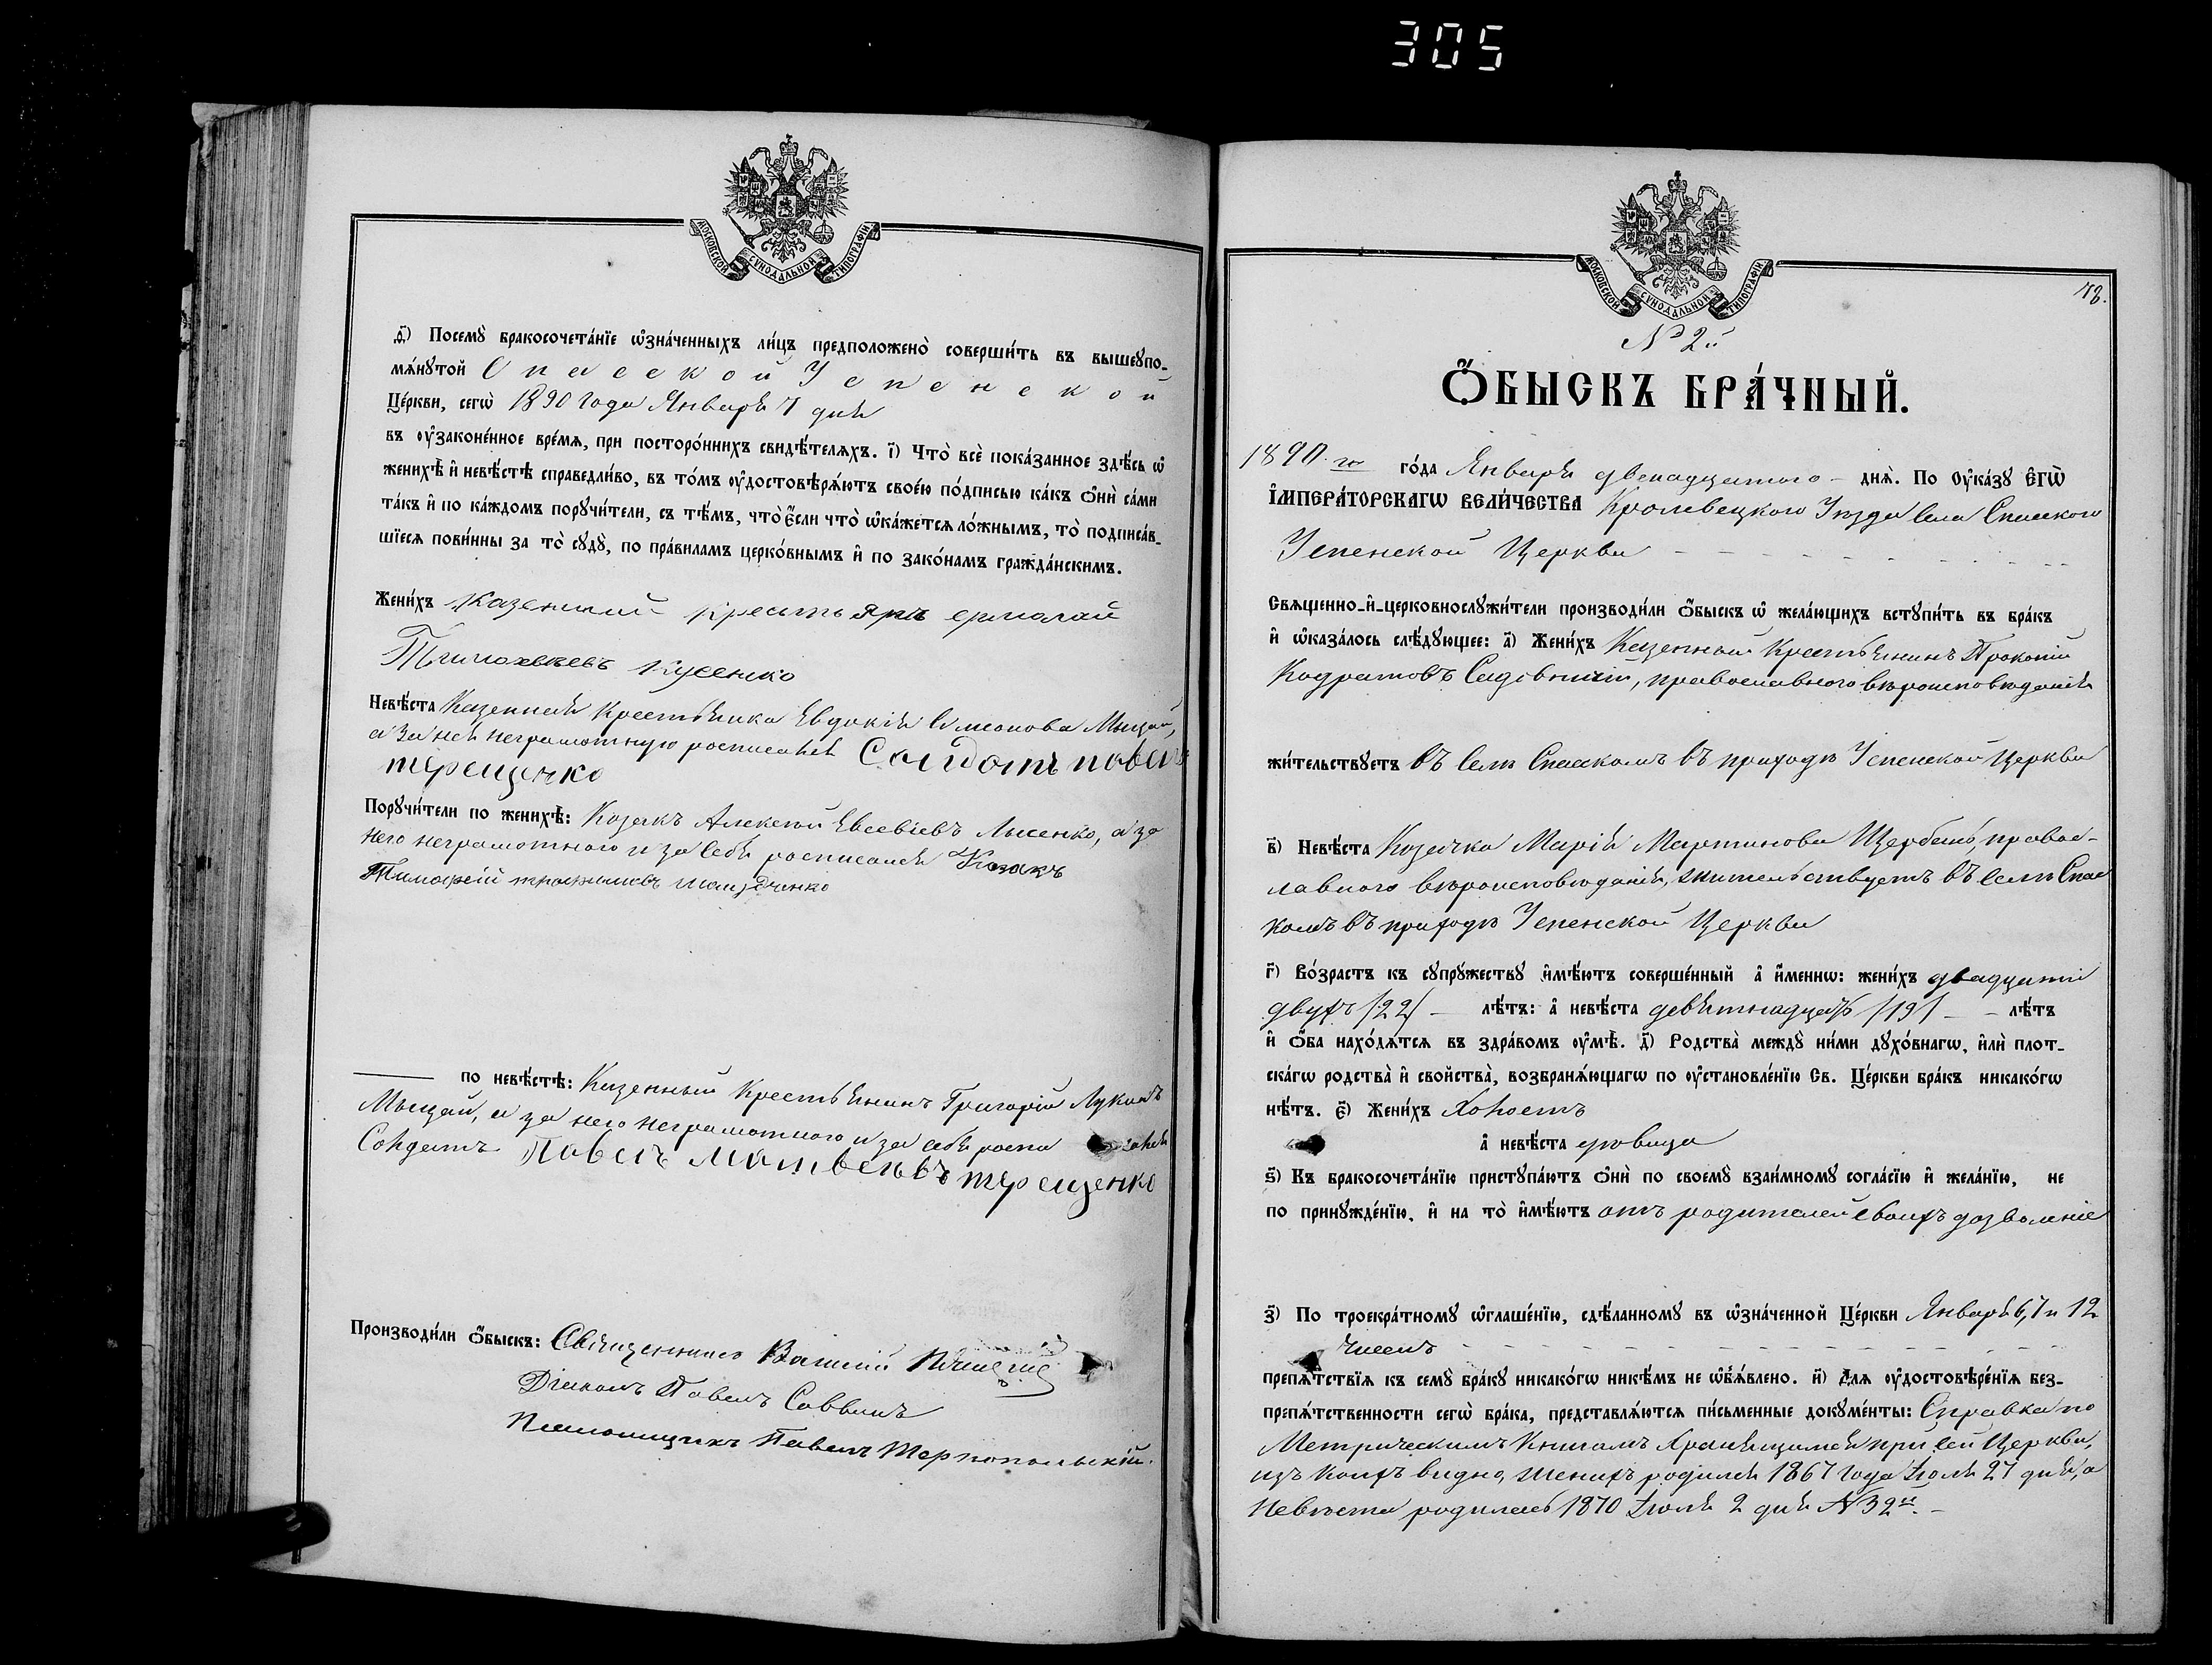 305
МОСКОВСКОЙ СѴНОДАЛЬНОЙ ТИПОГРАФІИ
д҃) Посемꙋ̀ бракосочета́нїе ѡ҆зна́ченныхъ ли́цъ предположено̀ соверши́ть въ вышеꙋпо-
мѧ́нꙋтой Спасской Успенской
Це́ркви, сегѡ̀ 1890 года Января 7 дня
въ ᲂу҆законе́нное вре́мѧ, при посторо́ннихъ свидѣ́телѧхъ. і҃) Что̀ всѐ пока́занное здѣ́сь ѡ҆
женихѣ̀ и҆ невѣ́стѣ справедли́во, въ то́мъ ᲂу҆достовѣрѧ́ютъ свое́ю по́дписью ка́къ ѻ҆нѝ са́ми
та́къ и҆ по ка́ждомъ порꙋчи́тели, съ тѣ́мъ, что̀ є҆́сли что̀ ѡ҆ка́жетсѧ ло́жнымъ, то̀ подписа́в-
шїесѧ пови́нны за то̀ сꙋдꙋ̀, по пра́виламъ церко́внымъ и҆ по зако́намъ гражда́нскимъ.
Жени́хъ Казенный крестьянъ ермолай
Тимохвеевъ Кусенко
Невѣ́ста Казенная Крестьянка Евдокія Симеонова Мыцай,
а за нея неграмотную росписался Солдатъ павелъ
терещенко
Порꙋчи́тели по женихѣ̀: Козакъ Алексѣй Евсевіевъ Лысенко, а за
него неграмотного и за себя росписался Козакъ
Тимофей
по невѣ́стѣ: Казенный Крестьянинъ Григорій Лукинъ
Мыцай, а за него неграмотного и за себя роспи сался
Солдатъ Павелъ Матвеевъ терещенко
Производи́ли ѻ҆́быскъ: Священникъ Василій
Діаконъ Павелъ Саввинъ
Псаломщикъ Павелъ Тарнопольскій.
МОСКОВСКОЙ СѴНОДАЛЬНОЙ ТИПОГРАФІИ
48.
№ 2й
Ѻ҆́БЫСКЪ БРА́ЧНЫЙ.
1890 го го́да Января двенадцатого - днѧ̀. По Оу҆ка́зꙋ Є҆ГѠ̀
І҆МПЕРА́ТОРСКАГѠ ВЕЛИ́ЧЕСТВА Кролевецкого Уѣзда Села Спасского
Успенской Церкви
Свѧщенно-и҆-церковнослꙋжи́тели производи́ли ѻ҆́быскъ ѡ҆ жела́ющихъ встꙋпи́ть въ бра́къ
и҆ ѡ҆каза́лось слѣ́дꙋющее: а҃) Жени́хъ Казенный Крестьянинъ Прокопій
Кодратовъ Садовничій, православного вѣроисповѣданія
жи́тельствꙋетъ въ Селѣ Спасскомъ въ приходѣ Успенской Церкви
в҃) Невѣ́ста Козачка Марія Мартинова Щербакъ, правос-
лавного вѣроисповѣданія, жительствуетъ въ Селѣ Спас
комъ въ приходѣ Успенской Церкви
г҃) Во́зрастъ къ сꙋпрꙋжествꙋ и҆мѣ́ютъ соверше́нный а҆ и҆́меннѡ: жени́хъ двадцати
двухъ /22/ - лѣ́тъ: а҆ невѣ́ста девятнадцать /19/ - - лѣ́тъ
и҆ ѻ҆́ба нахо́дѧтсѧ въ здра́вомъ ᲂу҆мѣ̀. д҃) Родства̀ междꙋ̀ ни́ми дꙋхо́внагѡ, и҆лѝ плот-
ска́гѡ родства̀ и҆ свойства̀, возбранѧ́ющагѡ по ᲂу҆становле́нїю Св. Це́ркви бра́къ никако́гѡ
нѣ́тъ. є҃) Жени́хъ Холостъ
а҆ невѣ́ста дѣвица
ѕ҃) Къ бракосочета́нїю пристꙋпа́ютъ ѻ҆нѝ по своемꙋ̀ взаи́мномꙋ согла́сїю и҆ жела́нїю, не
по принꙋжде́нїю, и҆ на то̀ и҆мѣ́ютъ отъ родителей своихъ дозволеніе
з҃) По троекра́тномꙋ ѡ҆глаше́нїю, сдѣ́ланномꙋ въ ѡ҆зна́ченной Це́ркви Января 6, 7 и 12
чиселъ
препѧ́тствїѧ къ семꙋ̀ бра́кꙋ никако́гѡ никѣ́мъ не ѡ҆б̾ѧ́влено. и҃) Длѧ ᲂу҆достовѣре́нїѧ без-
препѧ́тственности сегѡ̀ бра́ка, представлѧ́ютсѧ пи́сьменные докꙋме́нты: Справка по
Метрическимъ Книгамъ хранящимся при сей Церкви,
изъ коихъ видно, женихъ родился 1867 года Іюля 27 дня, а
невѣста родилась 1870 Іюля 2 дня № 32й. -